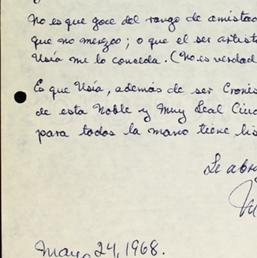 No es que goce del rango de amistad
que no merezco; o que el ser artista
Usía me lo conceda. (No es verdad
Es que Usía, además de ser Cronis
de esta Noble y Muy Leal Ciud
para todos la mano tiene lis
Le abra
Mayo 24, 1968.